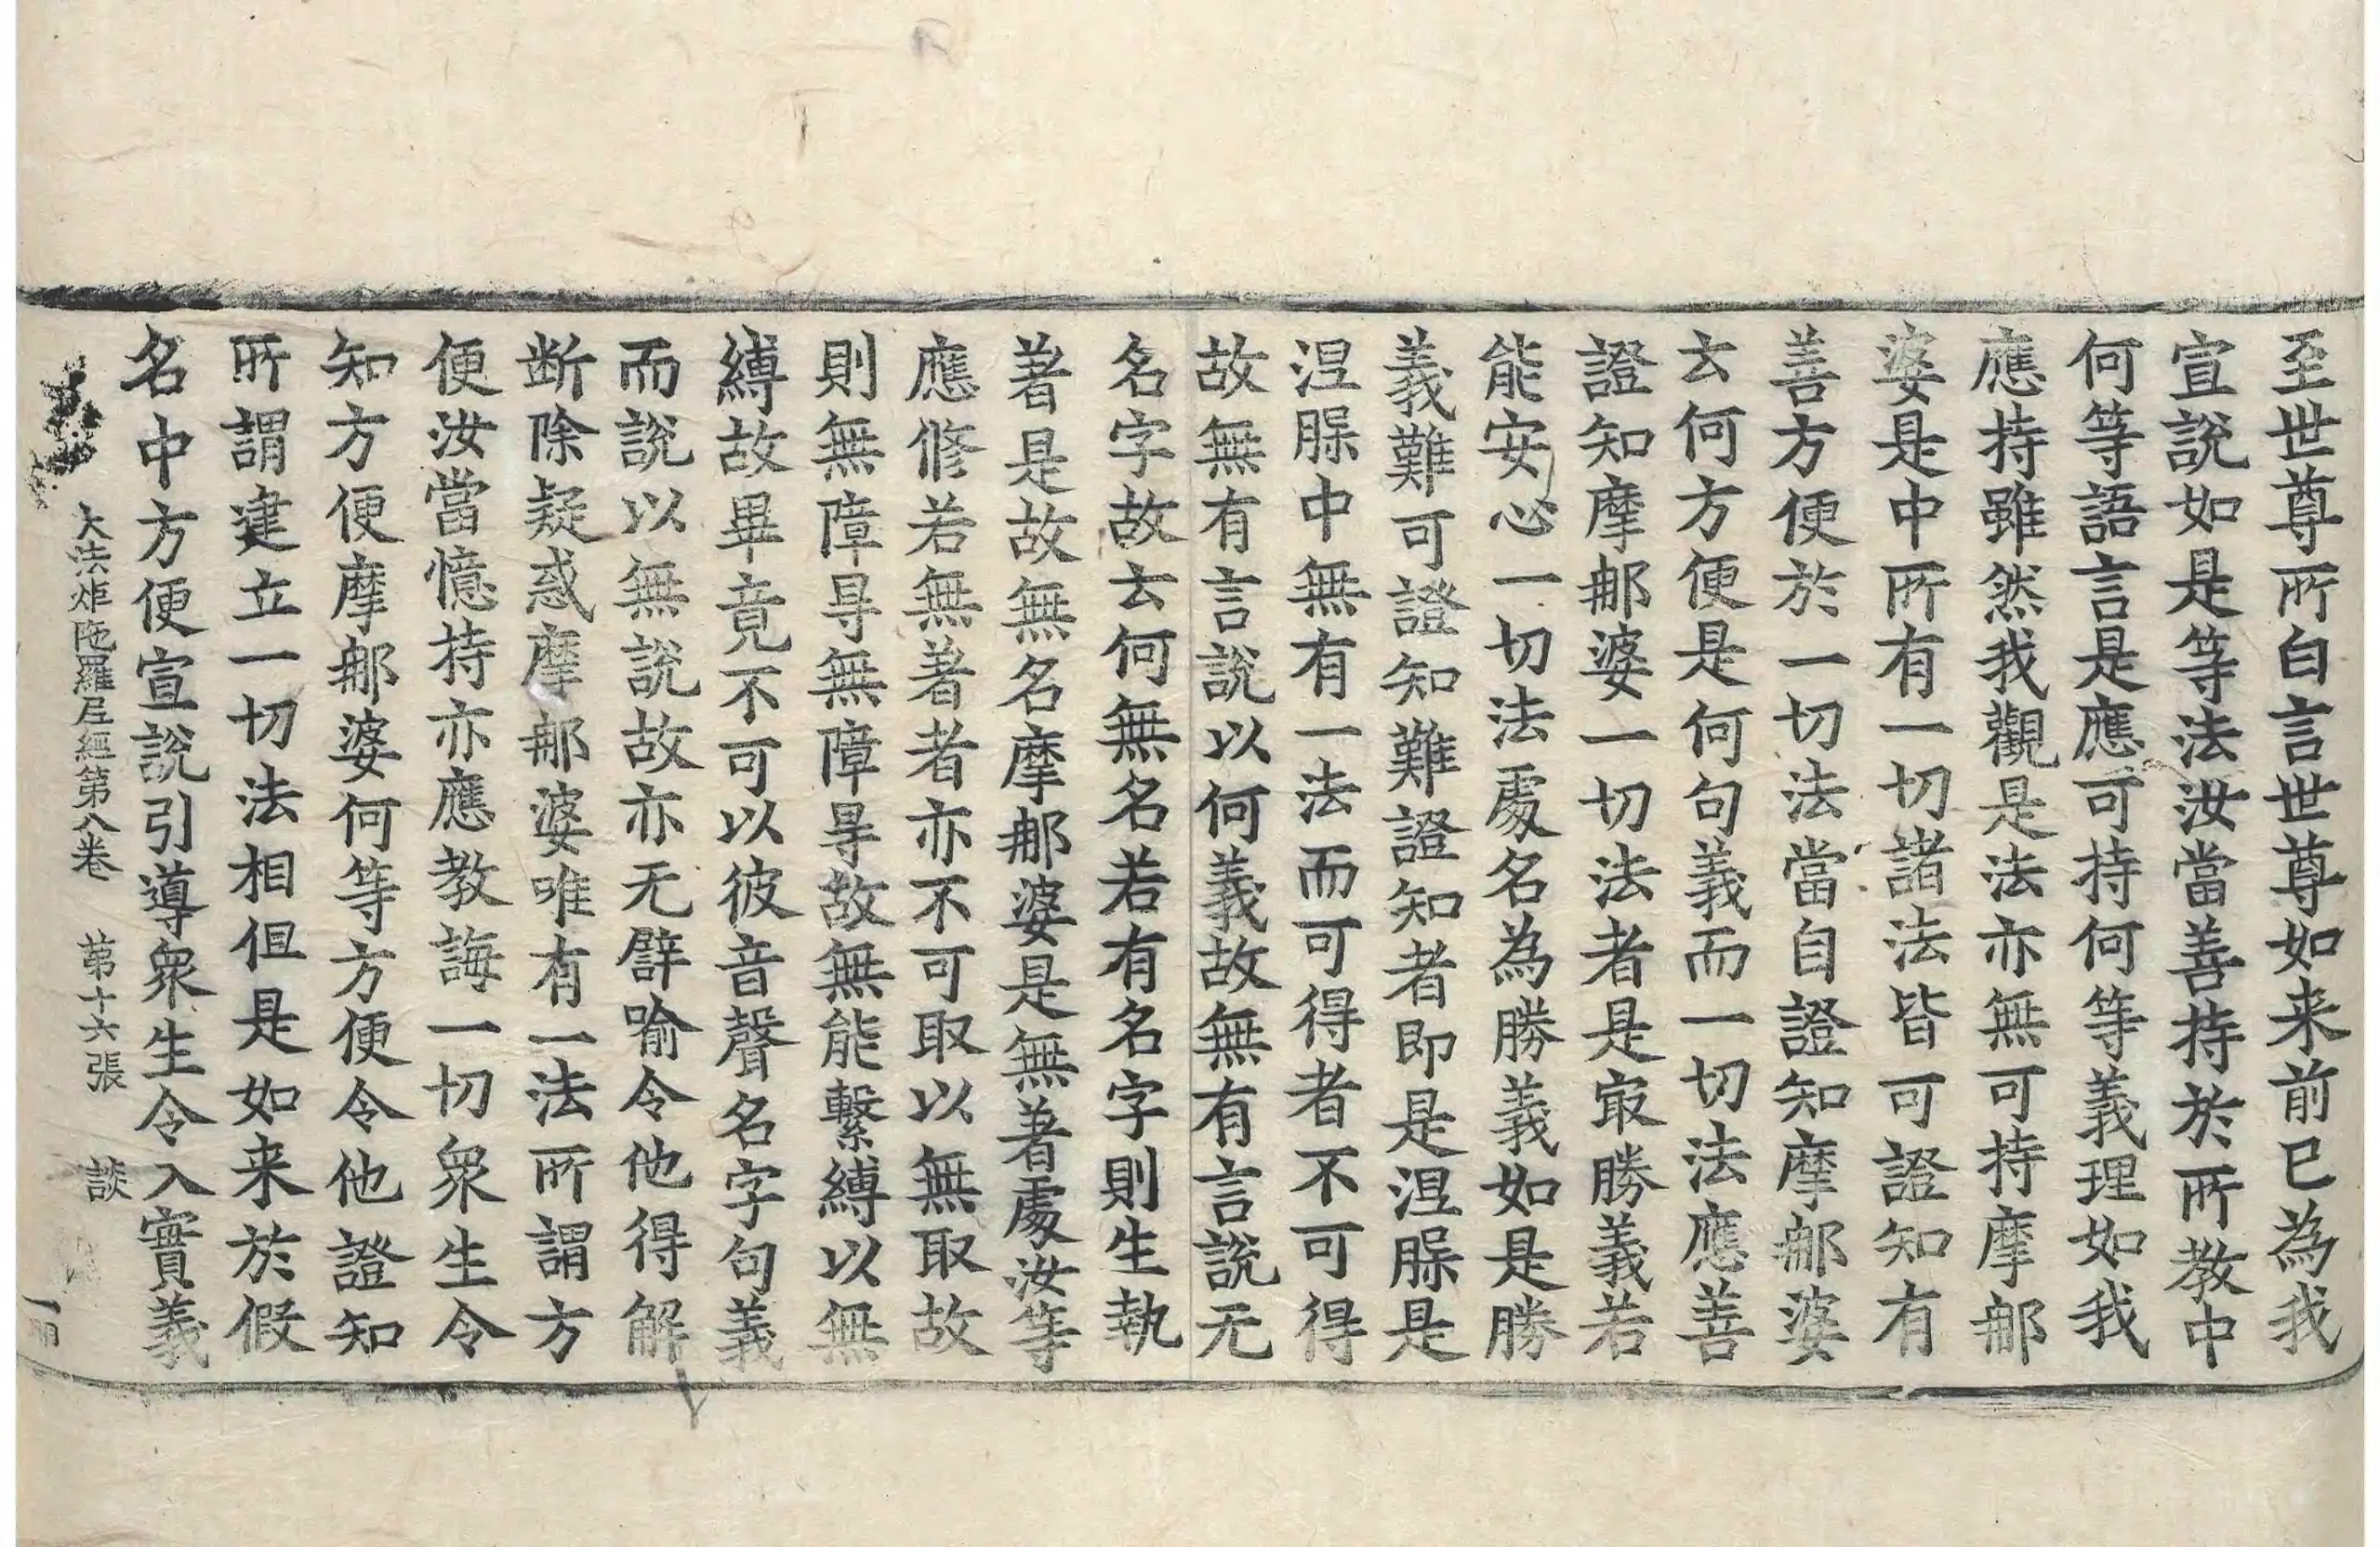 至世尊所白言世尊如来前已為我
宣說如是等法汝當善持於所教中
何等語言是應可持何等義理如我
應持雖然我觀是法亦無可持摩䢴
婆是中所有一切諸法皆可證知有
善方便於一切法當自證知摩䢴婆
云何方便是何句義而一切法應善
證知摩䢴婆一切法者是冣勝義若
能安心一切法處名為勝義如是勝
義難可證知難證知者即是涅槃是
涅槃中無有一法而可得者不可得
故無有言說以何義故無有言說无
名字故云何無名若有名字則生執
著是故無名摩䢴婆是無著處汝等
應修若無著者亦不可取以無取故
則無障㝵無障㝵故無能繫縛以無
縛故畢竟不可以彼音聲名字句義
而說以無說故亦无譬喻令他得解
断除疑惑摩䢴婆唯有一法所謂方
便汝當憶持亦應教誨一切眾生令
知方便摩䢴婆何等方便令他證知
所謂建立一切法相但是如来於假
名中方便宣說引導眾生令入實義
大法炬陁羅尼經第八卷 苐十六張 談